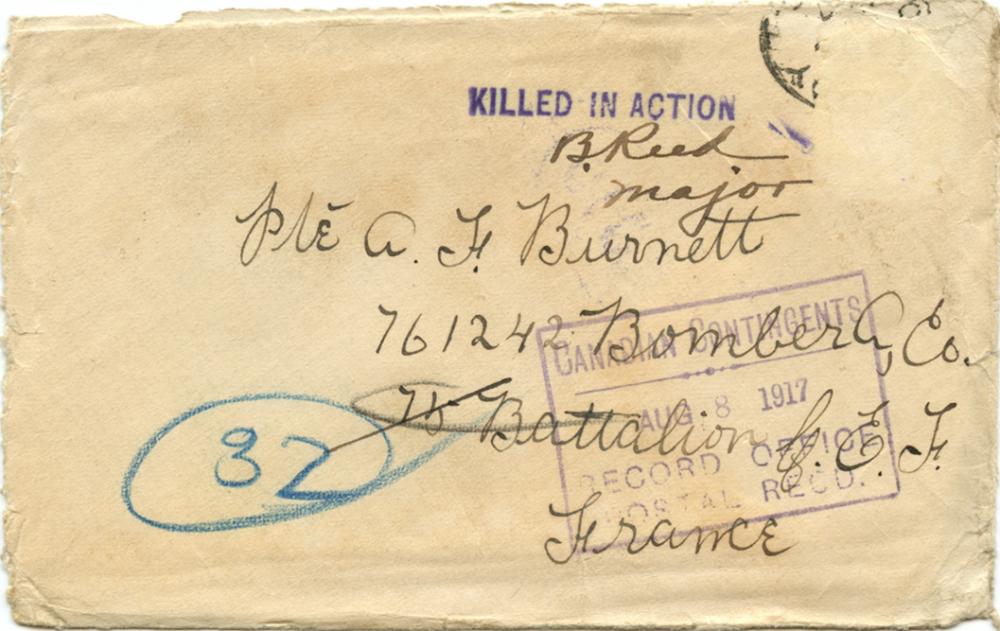 KILLED IN ACTION
B. Reed
Major
Pte A. F. Burnett
761242 Bomber A, Co.
75 Battalion C. E. F.
France
32
CANADIAN CONTINGENTS
AUG 8 1917
RECORD OFFICE
POSTAL RECD.